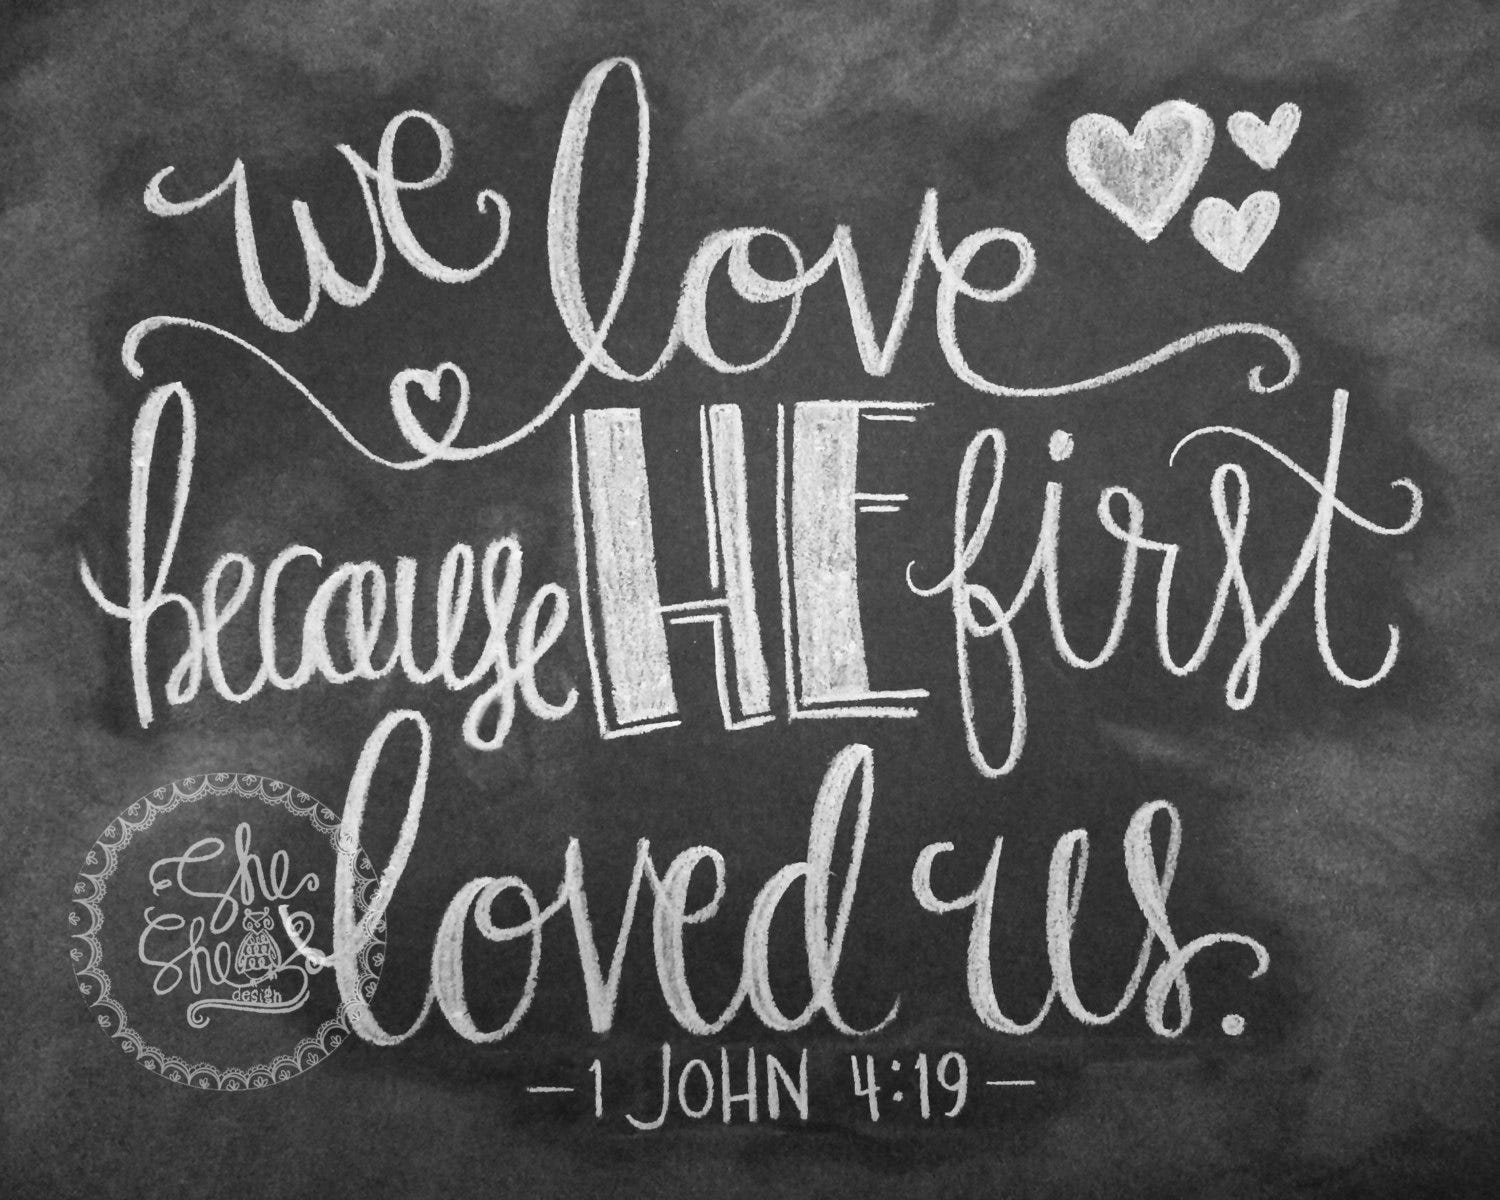 we love
because HE first
loved us.
-1 JOHN 4:19-
She
She
design